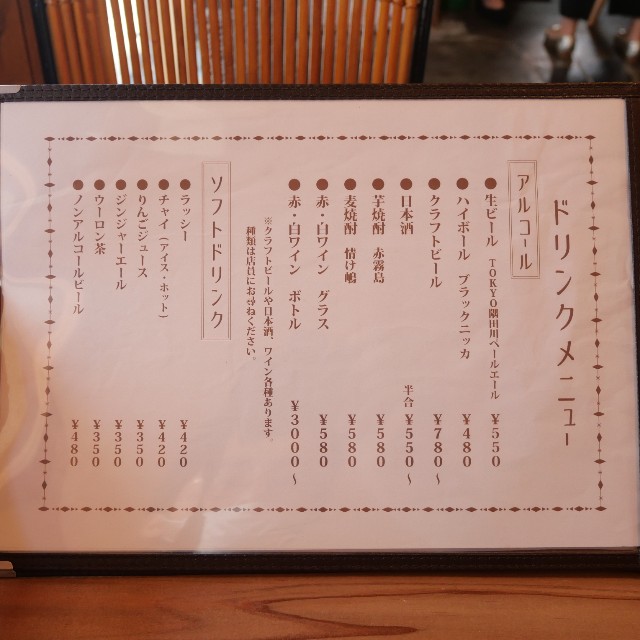 ドリンクメニュー
アルコール
●生ビール TOKYO隅田川ペールエール ¥550
●ハイボール ブラックニッカ ¥480
●クラフトビール ¥780〜
●日本酒 半合 ¥550〜
●芋焼酎 赤霧島 ¥580
●麦焼酎 情け嶋 ¥580
●赤・白ワイン グラス ¥580
●赤・白ワイン ボトル ¥3000〜
※クラフトビールや日本酒、ワイン各種あります。
種類は店員にお尋ねください。
ソフトドリンク
●ラッシー ¥420
●チャイ（アイス・ホット） ¥420
●りんごジュース ¥350
●ジンジャーエール ¥350
●ウーロン茶 ¥350
●ノンアルコールビール ¥480